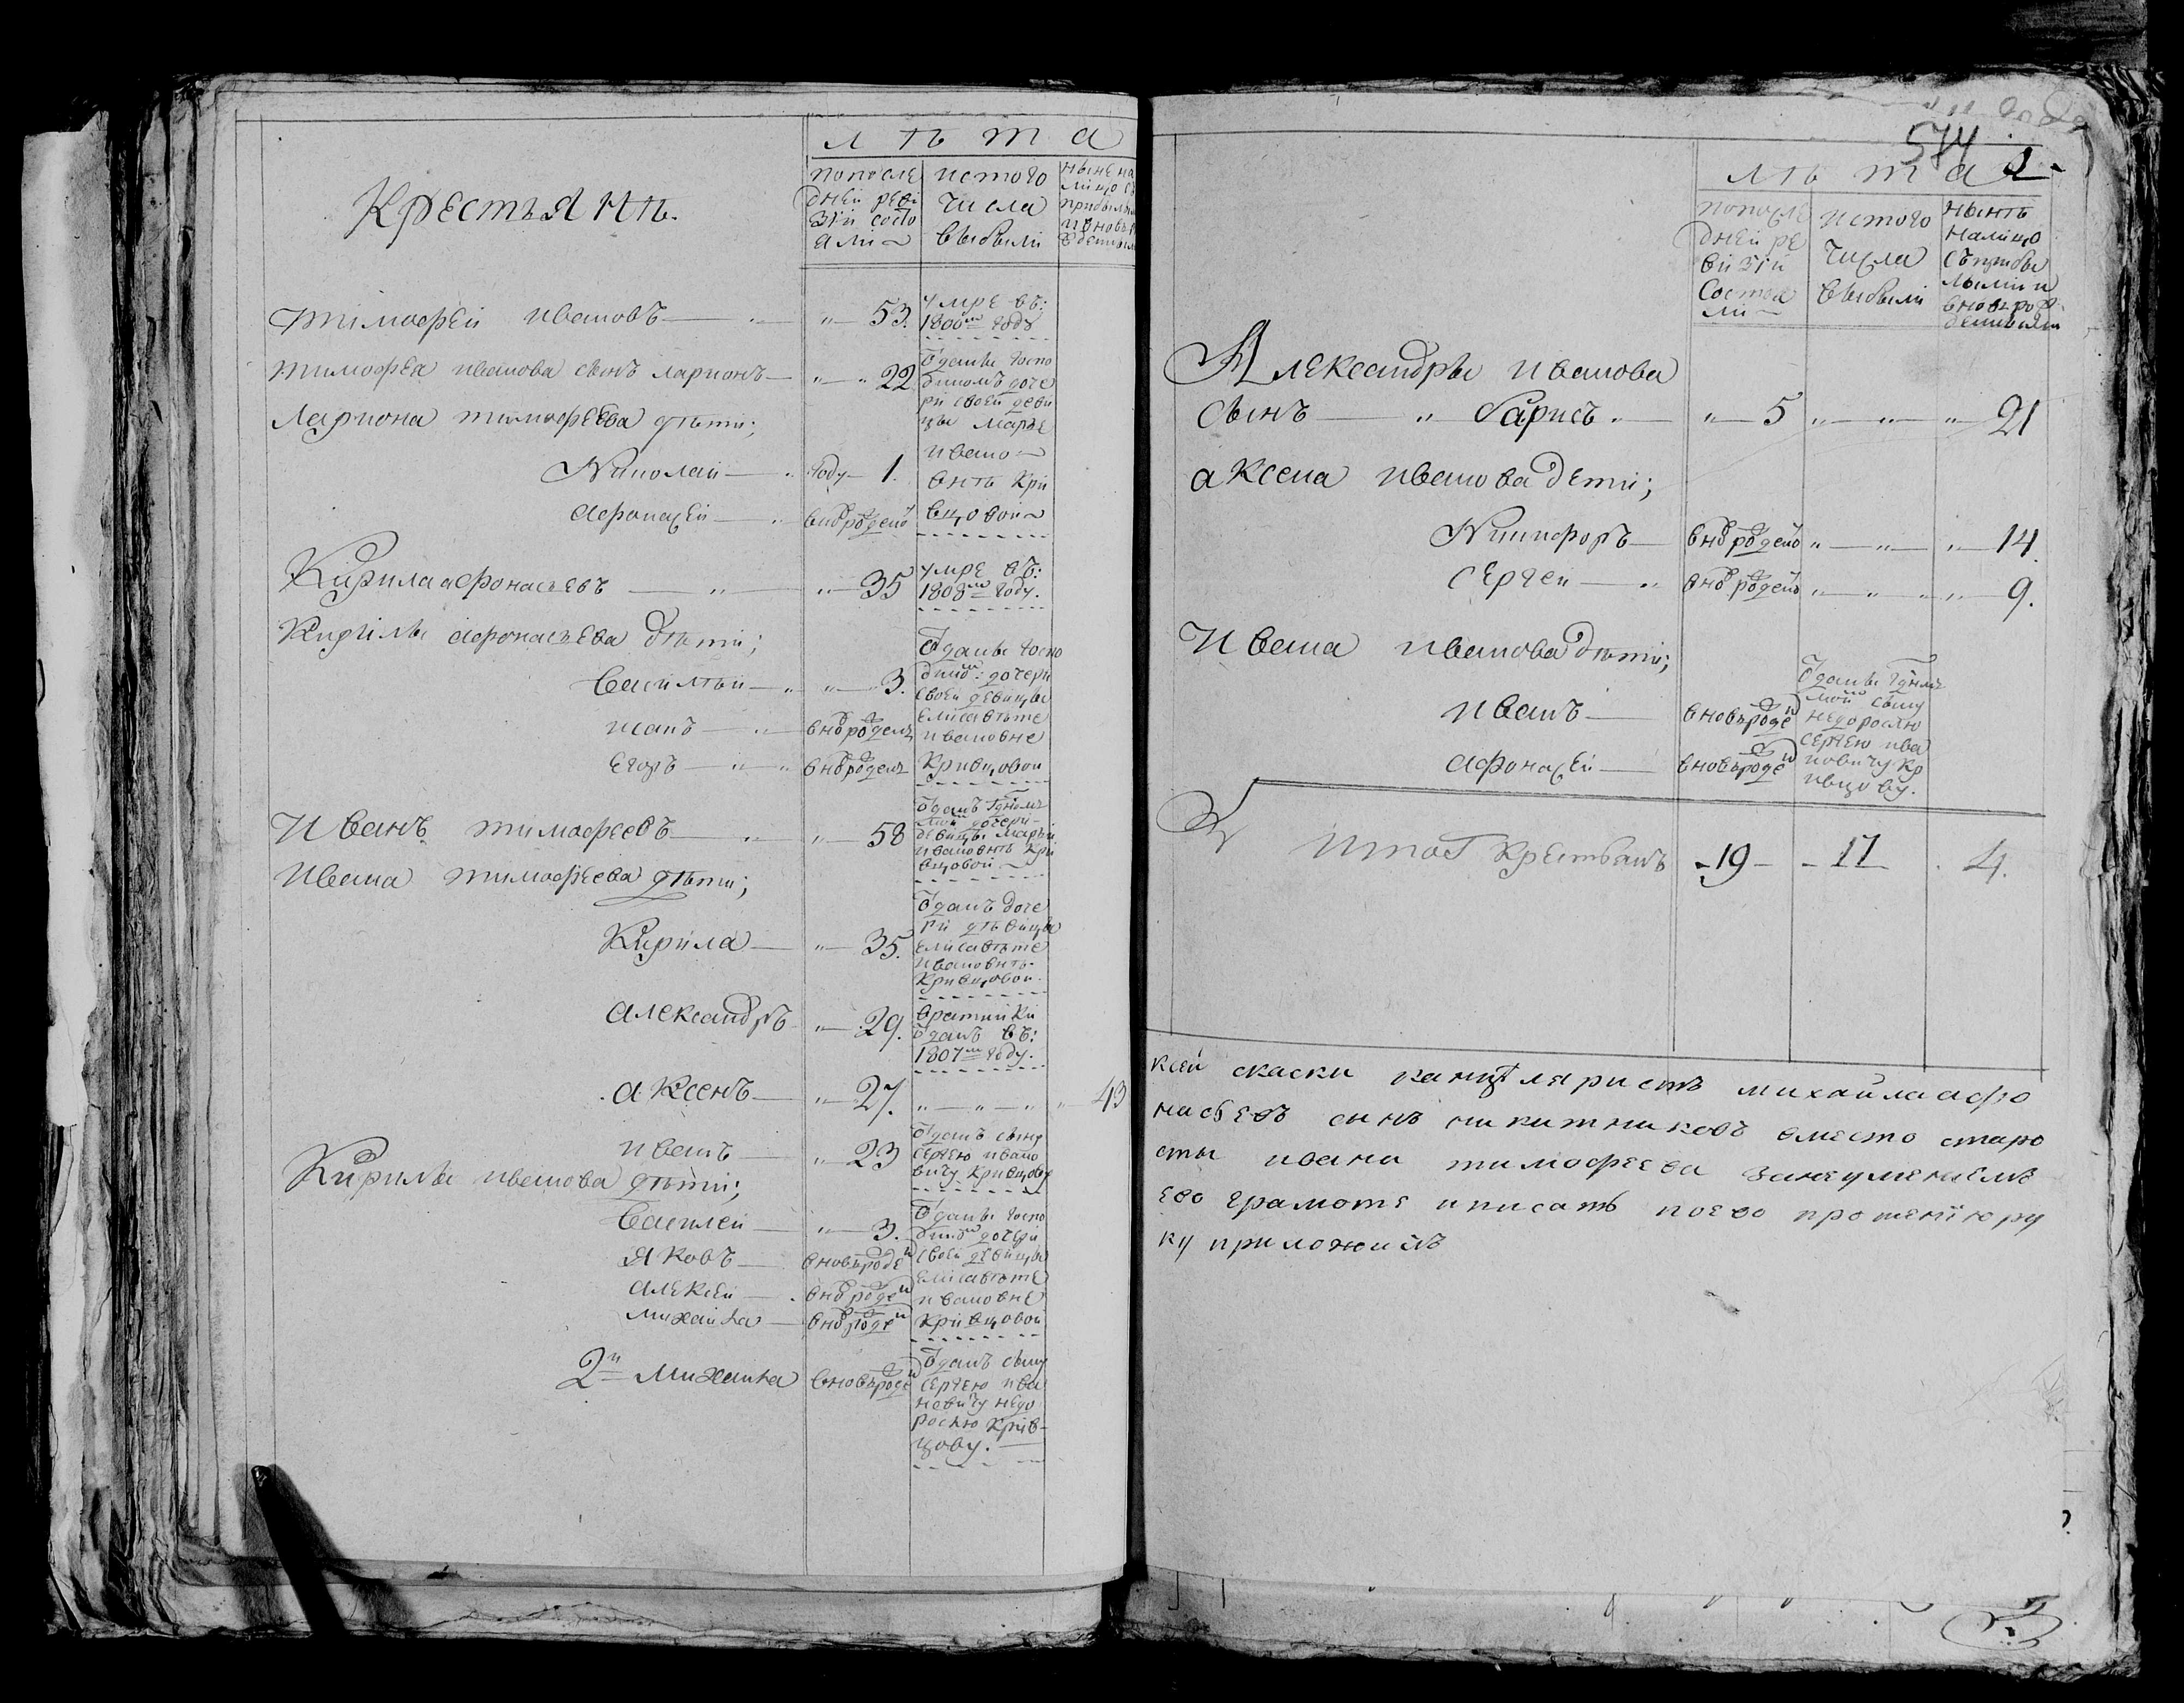 Крестьянъ.
лѣта
попосле
дней реви
зiи состо
али
истого
числа
выбыли
ныне на
лицо съ
Тимофей ивановъ — " — 53.
умре въ:
1800м году
тимофеа иванова сынъ ларионъ — " — 22
Отданы госпо
диномъ доче
ри своей деви
цы Марье
ивано
внѣ Кри
вцовой
Лариона тимофеева дѣти;
Николай — году — 1.
афонасей — вноврожденъ
Кирила афонасьевъ — " — 35
умре въ:
1808м году.
Кирилы афонасьева дѣти;
Отданы госпо
дином: дочери
своей девицы
елисаветѣ
ивановне
Кривцовой
василей — " — 3.
исаиъ — вноврожденъ
егоръ — вноврожденъ
Иванъ тимофеевъ — " — 58
Отданъ
дочери
девицы Марьи
ивановнѣ Кри
вцовой
Ивана тимофеева дѣти;
Кирила — " — 35.
Отданъ доче
ри дѣвицы
елисаветѣ
ивановнѣ
Кривцовой.
александръ — " — 29.
вратники
отданъ въ:
1807м году.
аксенъ — " — 27. " — " — " " — 43
иванъ — " 23
Отданъ сыну
сергею ивано
вичу Кривцову
Кирилы иванова дѣти;
василей — " — 3.
Отданы госпо
дином дочери
своей девицы
елисаветѣ
ивановне
Кривцовой
Яковъ — вновьрожде
алексей — вноврожде
михаила — вноврожде
2й михаила вновьрожде
Отданъ сыну
сергею ива
новичу недо
рослю Крив-
цову.
574
лѣта
попосле
дней ре
визiи
состоя
ли
истого
числа
выбыли
нынѣ
налицо
съприбы
лыми и
вновь рож
денными
Александры иванова
сынъ — " Барисъ " — " — 5 " — " — " — 21
аксена иванова дети;
Никифоръ — вноврождено " — " — " — 14.
сергеи — вноврождено " " " " — 9.
Ивана иванова дѣти;
иванъ — вновьрожде
Отданы
сыну
недорослю
сергею ива
новичу Кр
ивцову.
афонасей — вновьрожде
Итого Крестьянъ - 19 - - 11 - 4.
ксей скаски канцеляристъ михайла афо
насьевъ сынъ никитниковъ вместо старо
сты ивана тимофеева занеуменiемъ
ево грамоте иписать поево прошенiю ру
ку приложилъ